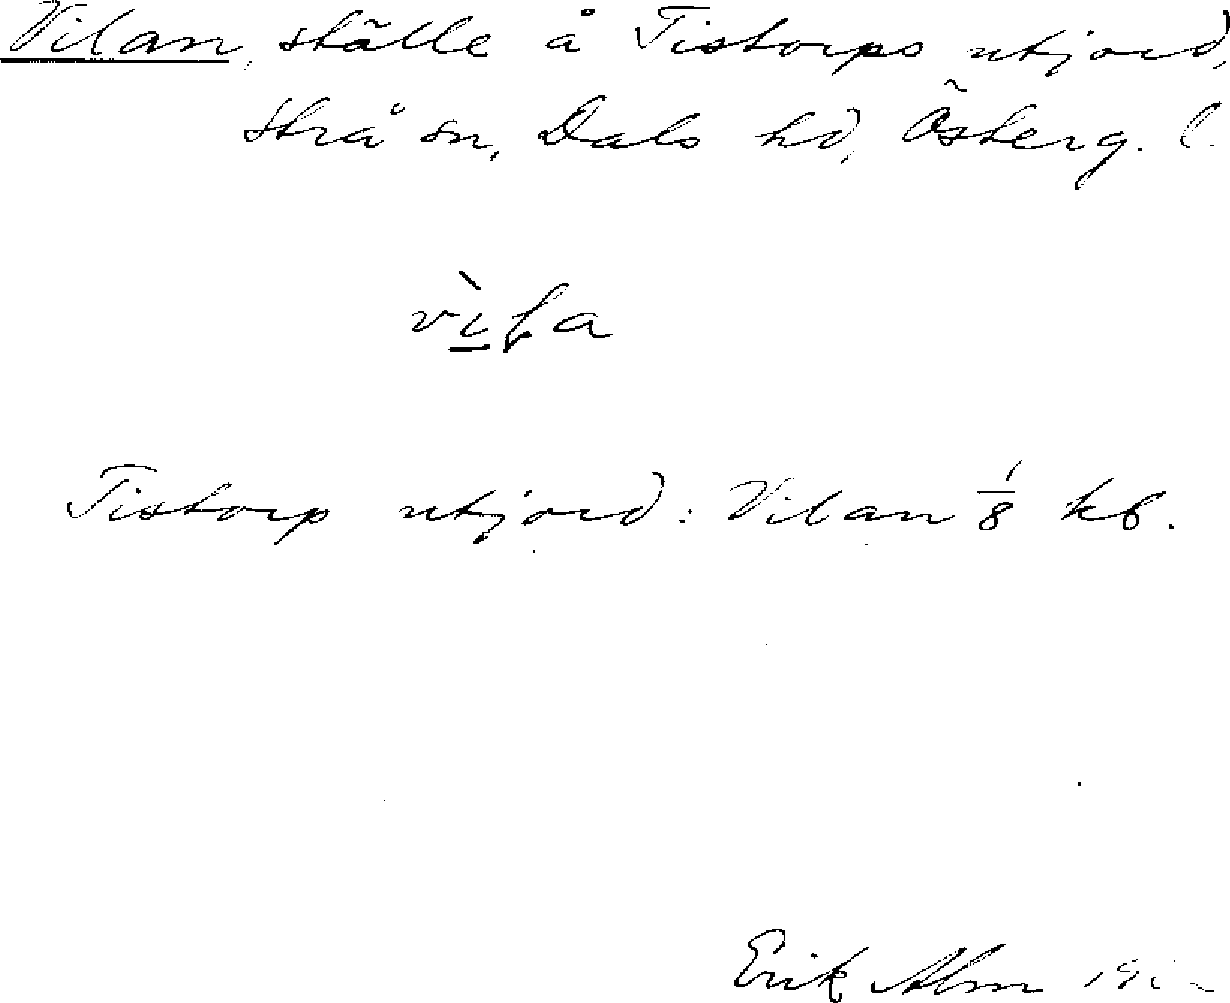 Vilan, ställe å Tistorps utjord,
Strå sn, Dals hd, Österg. l.
vìla
Tistorp utjord: Vilan 1/8 kb.
Erik Alm